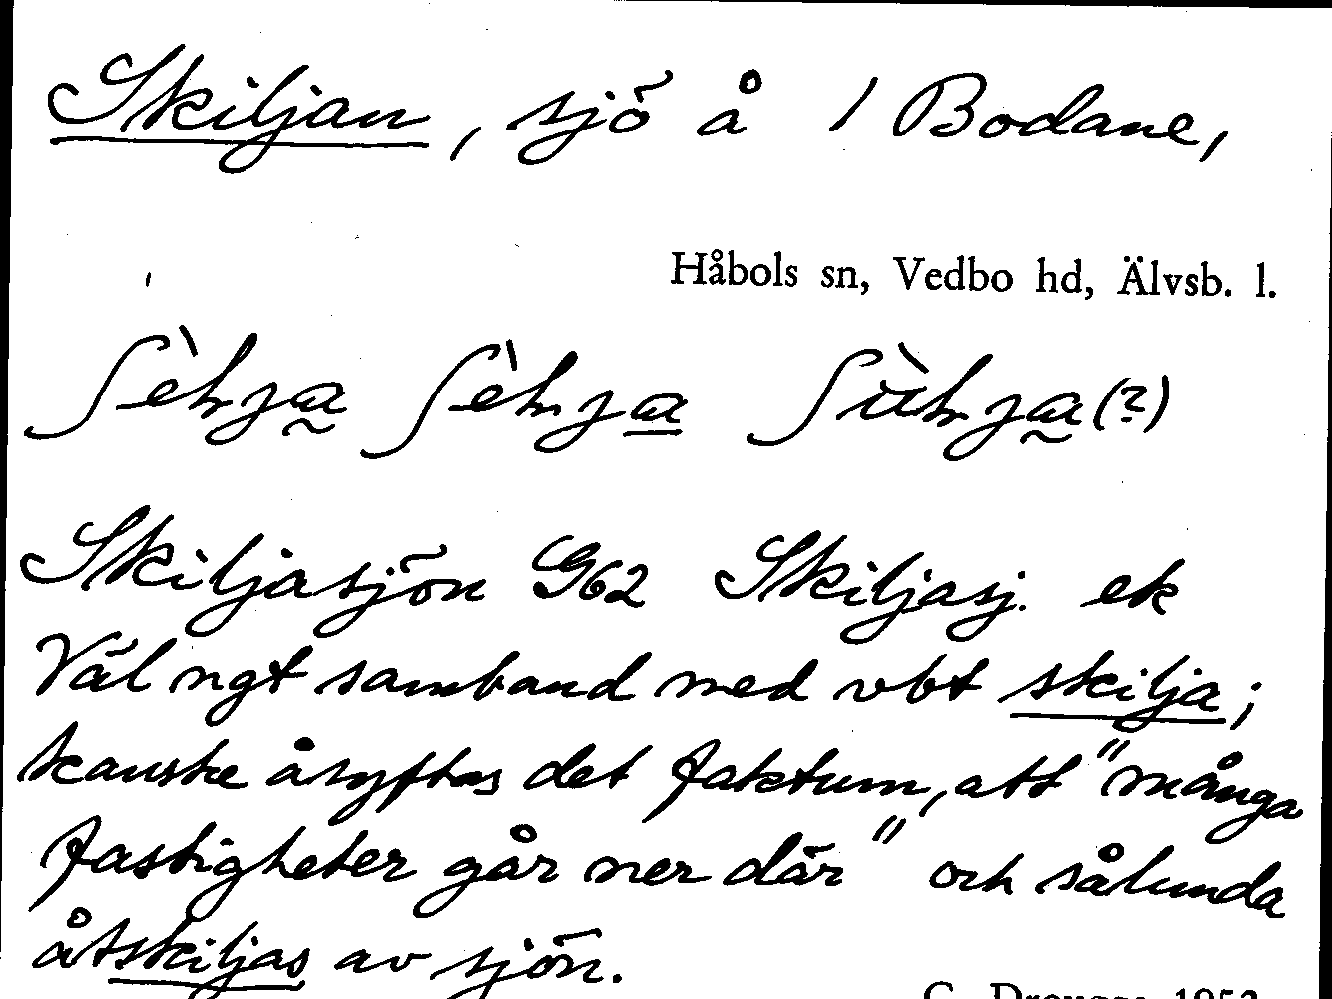 Skiljan, sjö å 1 Bodane,
Håbols sn, Vedbo hd, Älvsb. l.
Skiljasjön G62 Skiljasj. ek
Väl ngt samband med vbt skilja;
kanske åsyftas det faktum, att "många
fastigheter går ner där" och sålunda
åtskiljas av sjön.